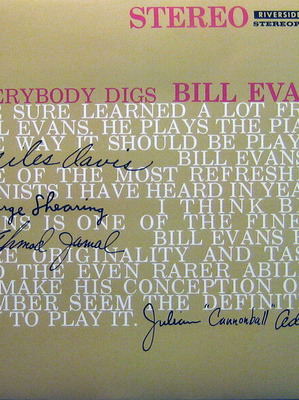 STEREO RIVERSIDE
STEREOP
ERYBODY DIGS BILL EVA
S SURE LEARNED A LOT FR
LL EVANS. HE PLAYS THE PIA
WAY IT SHOULD BE PLAY
iles Davis BILL EVANS
E OF THE MOST REFRESH
NISTS I HAVE HEARD IN YEA
rge Shearing I THINK B
S IS ONE OF THE FINE
Ahmad Jamal BILL EVANS
RE ORIGINALITY AND TAS
D THE EVEN RARER ABIL
MAKE HIS CONCEPTION O
MBER SEEM THE "DEFINIT
TO PLAY IT. Julian "Cannonball" Ad